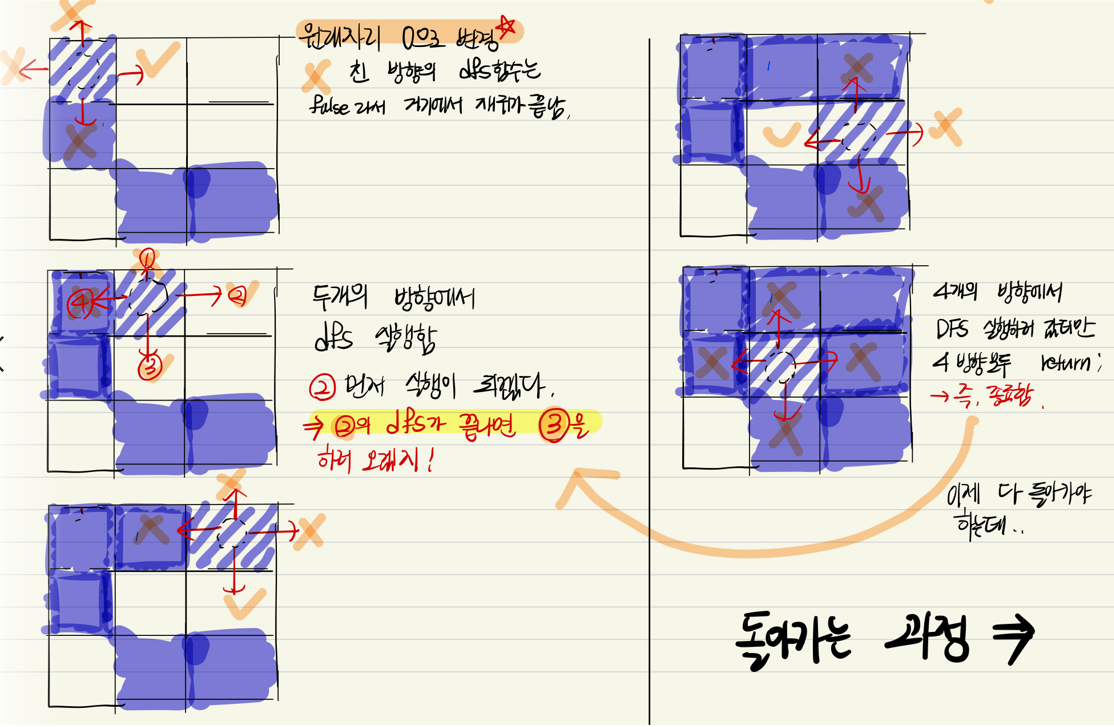 원래자리 0으로 변경
친 방향의 dfs함수는
false라서 거기에서 재귀가 끝남.
①
④
②
③
두개의 방향에서
dfs 실행함
② 먼저 실행이 되겠다.
⇒ ②의 dfs가 끝나면 ③을
하러 오겠지!
4개의 방향에서
DFS 실행하러 갔더만
4방향 모두 return;
→ 즉, 종료함.
이제 다 돌아가야
하는데..
돌아가는 과정 ⇒